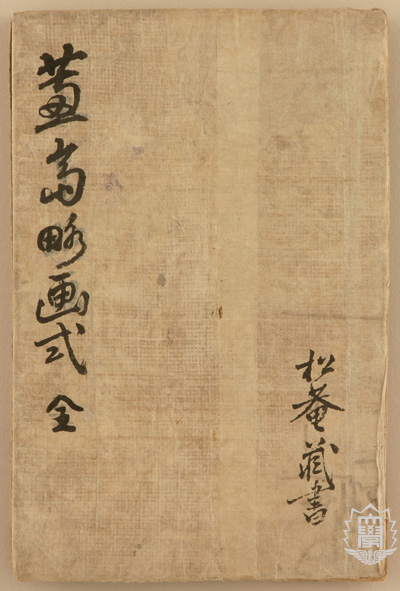 蕙斎略画式 全
松菴蔵書
大學